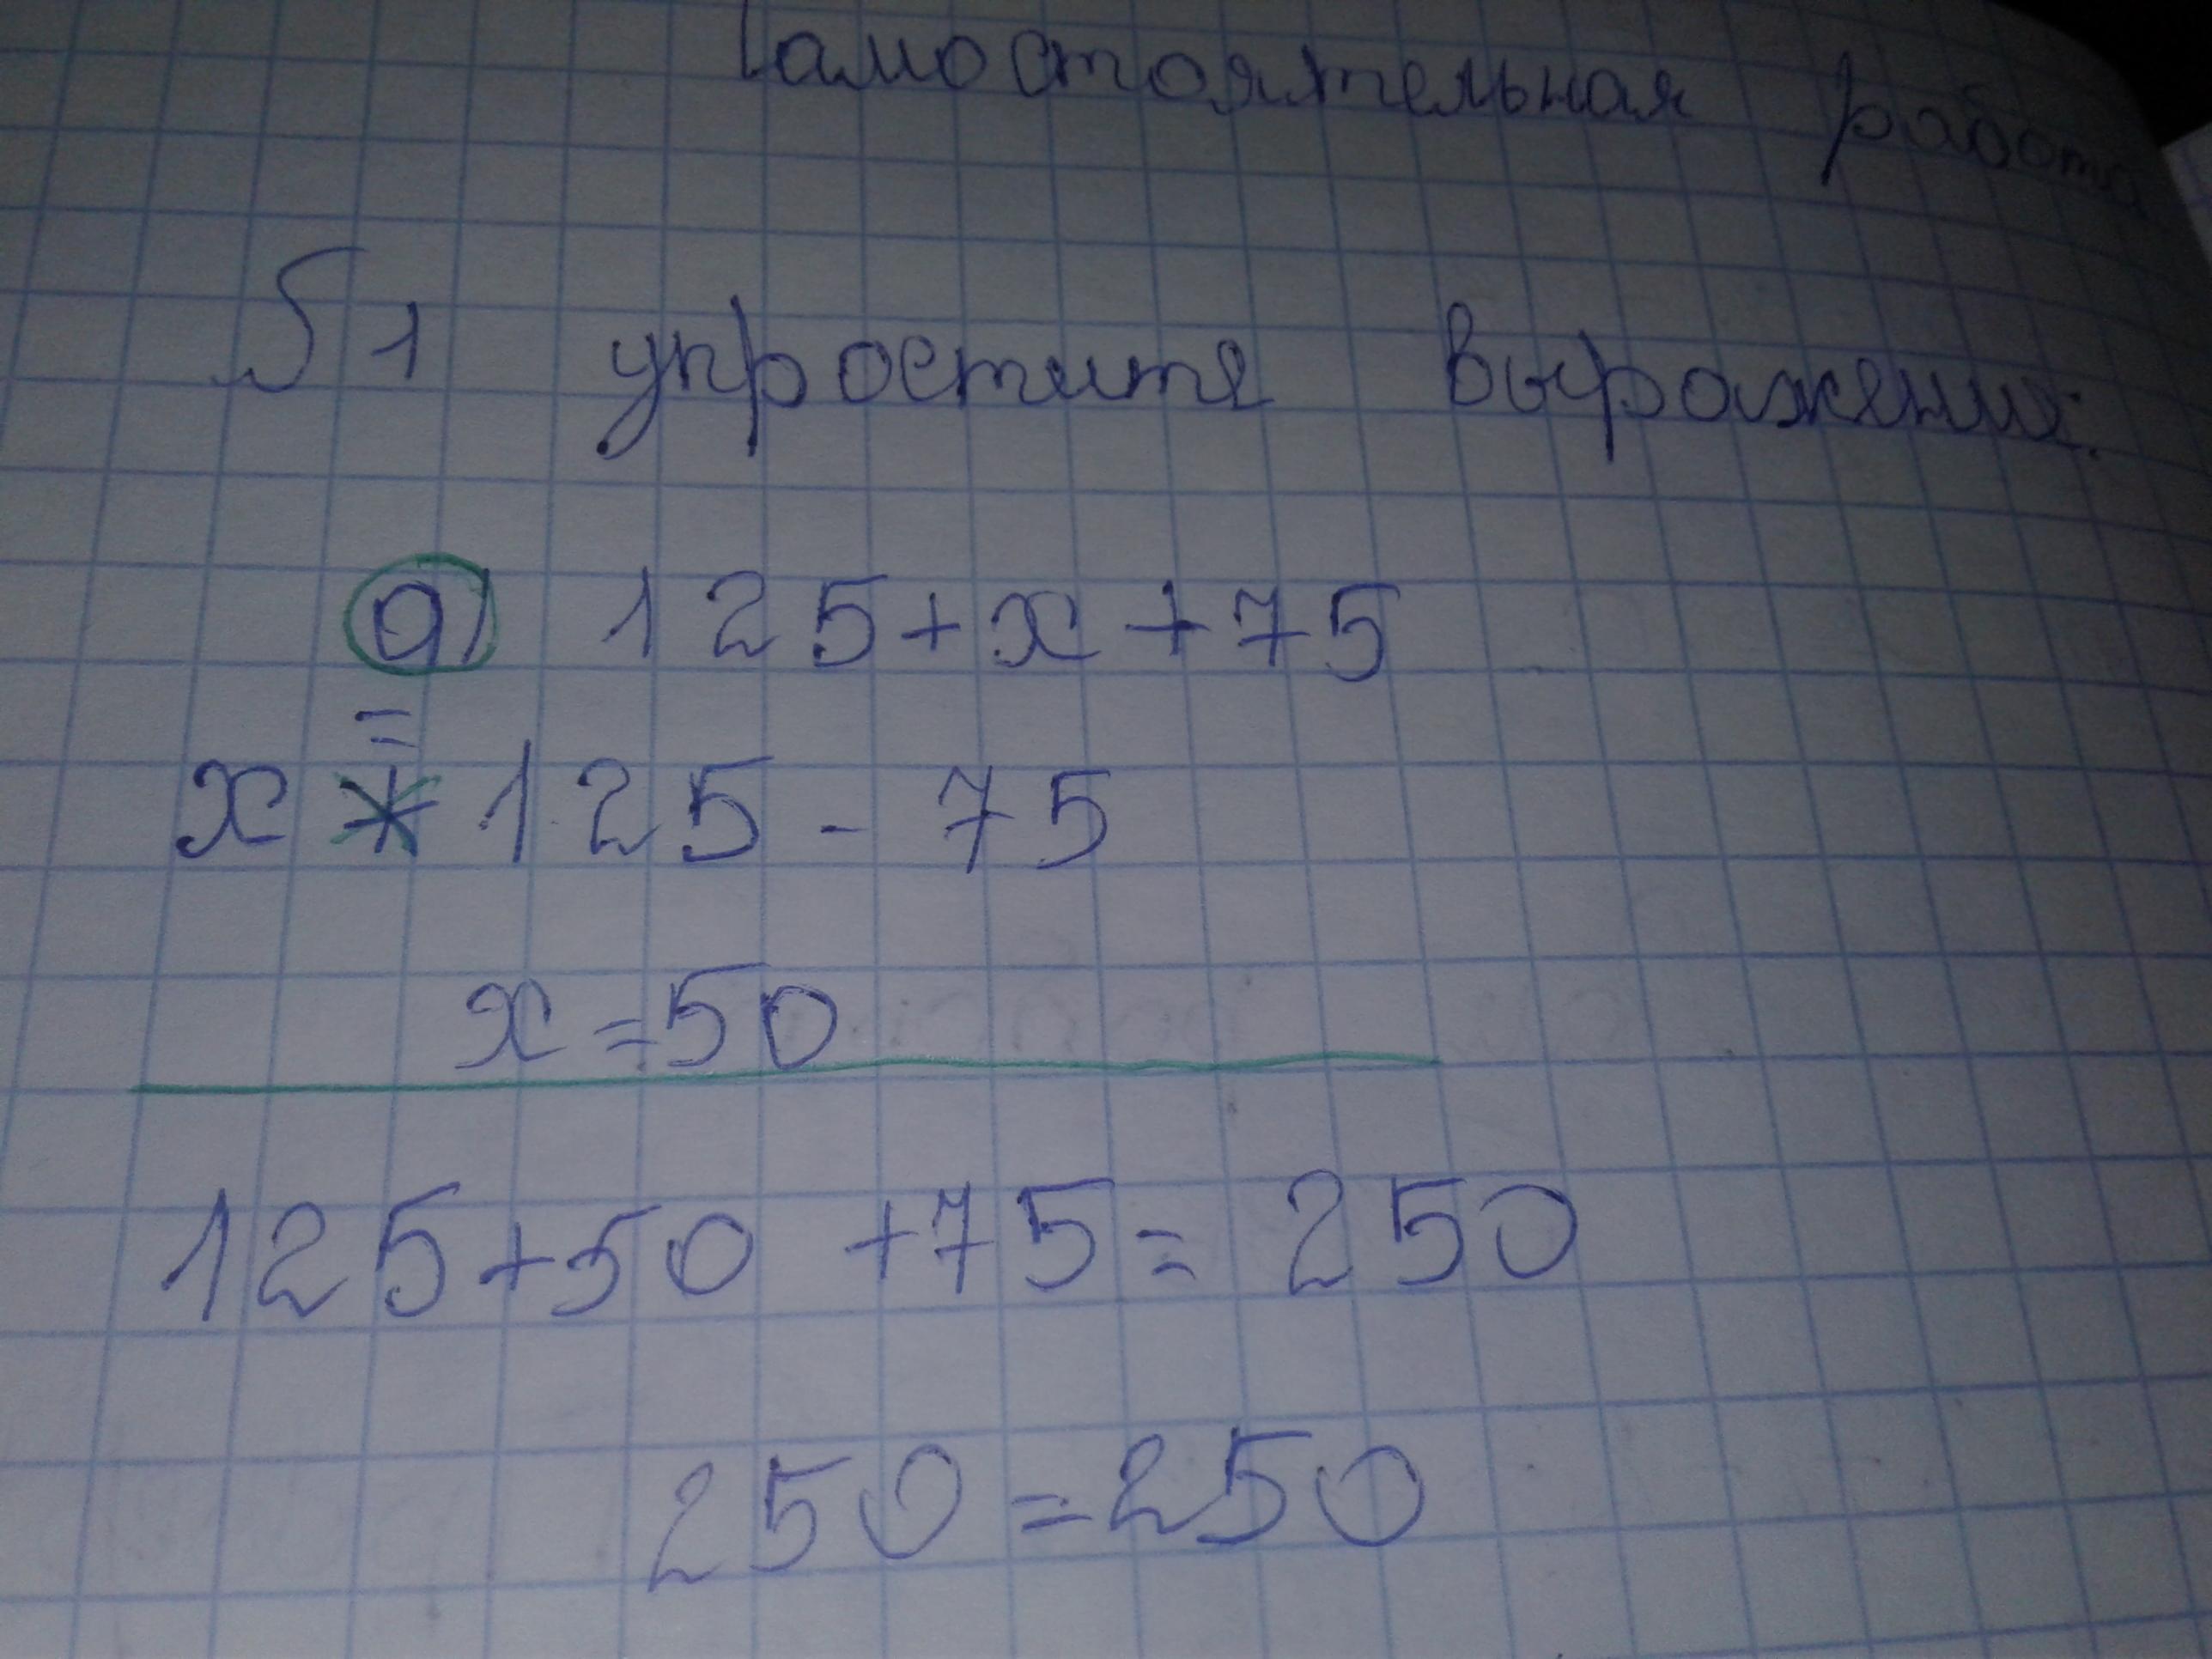 Самостоятельная работа
№1 упростите выражения:
а) 125+x+75
x = 125 - 75
x = 50
125+50 +75= 250
250 = 250